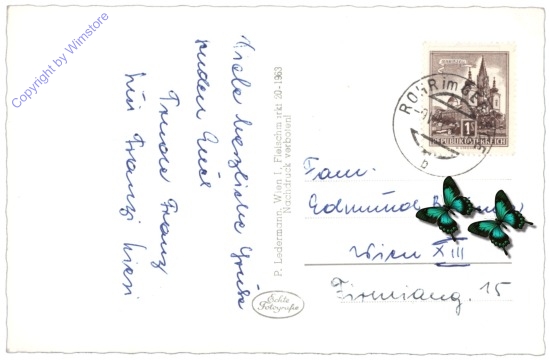 Copyright by Wimstore
Viele herzliche Grüße
senden Euch
Trude Franz
Franzi Liesi
P. Ledermann, Wien I, Fleischmarkt 20-1963
Nachdruck verboten!
Echte
Fotografie
ROHR im
1S
REPUBLIK ÖSTERREICH
Fam.
Edmund
Wien XIII
Firmiang. 15